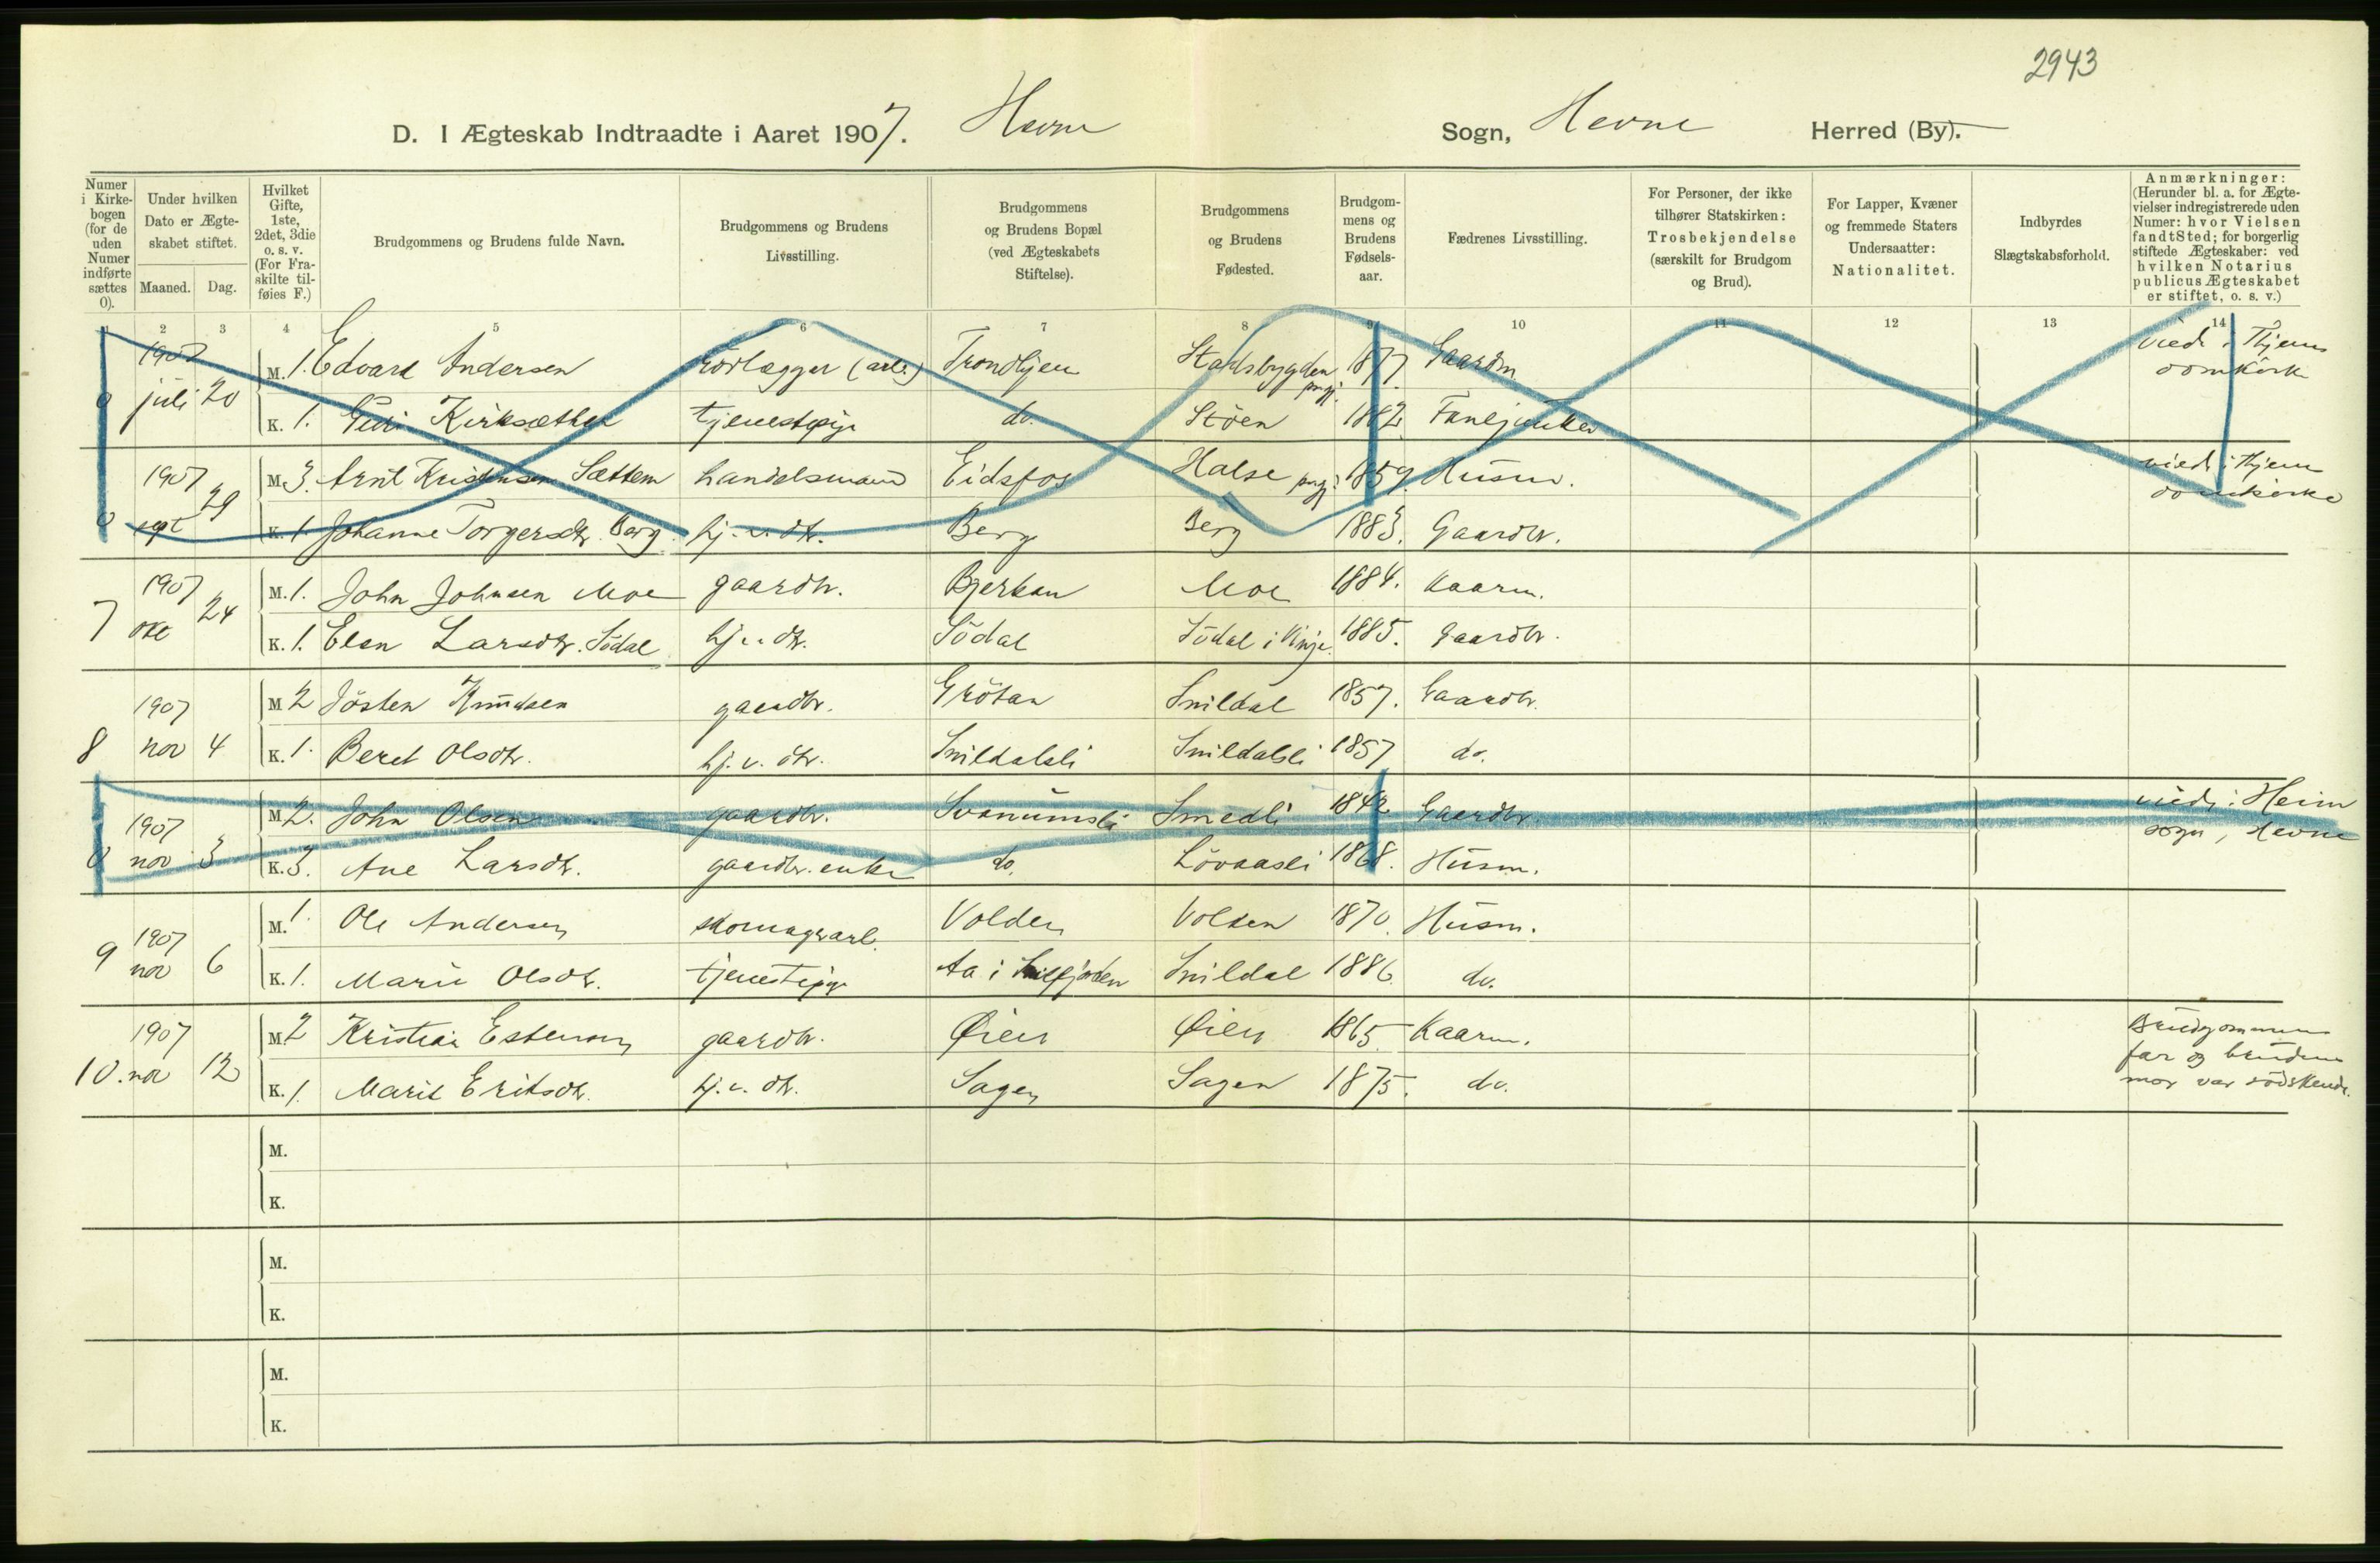 2943
D. I Ægteskab Indtraadte i Aaret 1907. Hevne Sogn, Hevne Herred (By).
Numer i Kirke-bogen (for de uden Numer indførte sættes 0).
Under hvilken Dato er Ægte-skabet stiftet.
Maaned. Dag.
Hvilket Gifte, 1ste, 2det, 3die o. s. v. (For Fra-skilte til-føies F.)
Brudgommens og Brudens fulde Navn.
Brudgommens og Brudens Livsstilling.
Brudgommens og Brudens Bopæl (ved Ægteskabets Stiftelse).
Brudgommens og Brudens Fødested.
Brudgom-mens og Brudens Fødsels-aar.
Fædrenes Livsstilling.
For Personer, der ikke tilhører Statskirken: Trosbekjendelse (særskilt for Brudgom og Brud).
For Lapper, Kvæner og fremmede Staters Undersaatter: Nationalitet.
Indbyrdes Slægtskabsforhold.
Anmærkninger: (Herunder bl. a. for Ægte-vielser indregistrerede uden Numer: hvor Vielsen fandt Sted; for borgerlig stiftede Ægteskaber: ved hvilken Notarius publicus Ægteskabet er stiftet, o. s. v.)
1 2 3 4 5 6 7 8 9 10 11 12 13 14
0 1907 juli 20 M. 1. Edvard Andersen rörlægger (arb.) Trondhjem Stadsbygden prgj. 1877. Gaardm viede i Thjems domkirke
K. 1. Guri Kirksæther tjenestepige do. Stöen 1882. Fanejunker
0 1907 sept 29 M. 3. Arnt Kristensen Sættem handelsmand Eidsfos Halse prgj. 1859. Husm. viede i Thjems domkirke
K. 1. Johanne Torgersdtr. Berg hj. v. dtr. Berg Berg 1883. Gaardbr.
7 1907 okt 24 M. 1. John Johnsen Moe gaardbr. Bjerkan Moe 1884. Kaarm.
K. 1. Elen Larsdtr. Södal hj. v. dtr. Södal Södal i Vinje 1885. Gaardbr.
8 1907 nov 4 M. 2 Jösten Knudsen gaardbr. Grötan Snildal 1857. Gaardbr.
K. 1. Beret Olsdtr. hj. v. dtr. Snildalsli Snildalsli 1857 do.
0 1907 nov 3 M. 2. John Olsen gaardbr. Svanumsli Smedli 1842 Gaardbr. viede i Heim sogn, Hevne
K. 3. Ane Larsdtr. gaardbr. enke do. Lövaasli 1868. Husm.
9 1907 nov 6 M. 1. Ole Andersen skomagerarb. Volden Volden 1870. Husm.
K. 1. Marie Olsdtr. tjenestepige Aa i Snilfjorden Snildal 1886. do.
10. 1907 nov 12 M. 2 Kristian Estensen gaardbr. Øien Øien 1865 Kaarm. Brudgommens far og brudens mor var södskende.
K. 1. Marit Eriksdtr. hj. v. dtr. Sagen Sagen 1875. do.
M.
K.
M.
K.
M.
K.